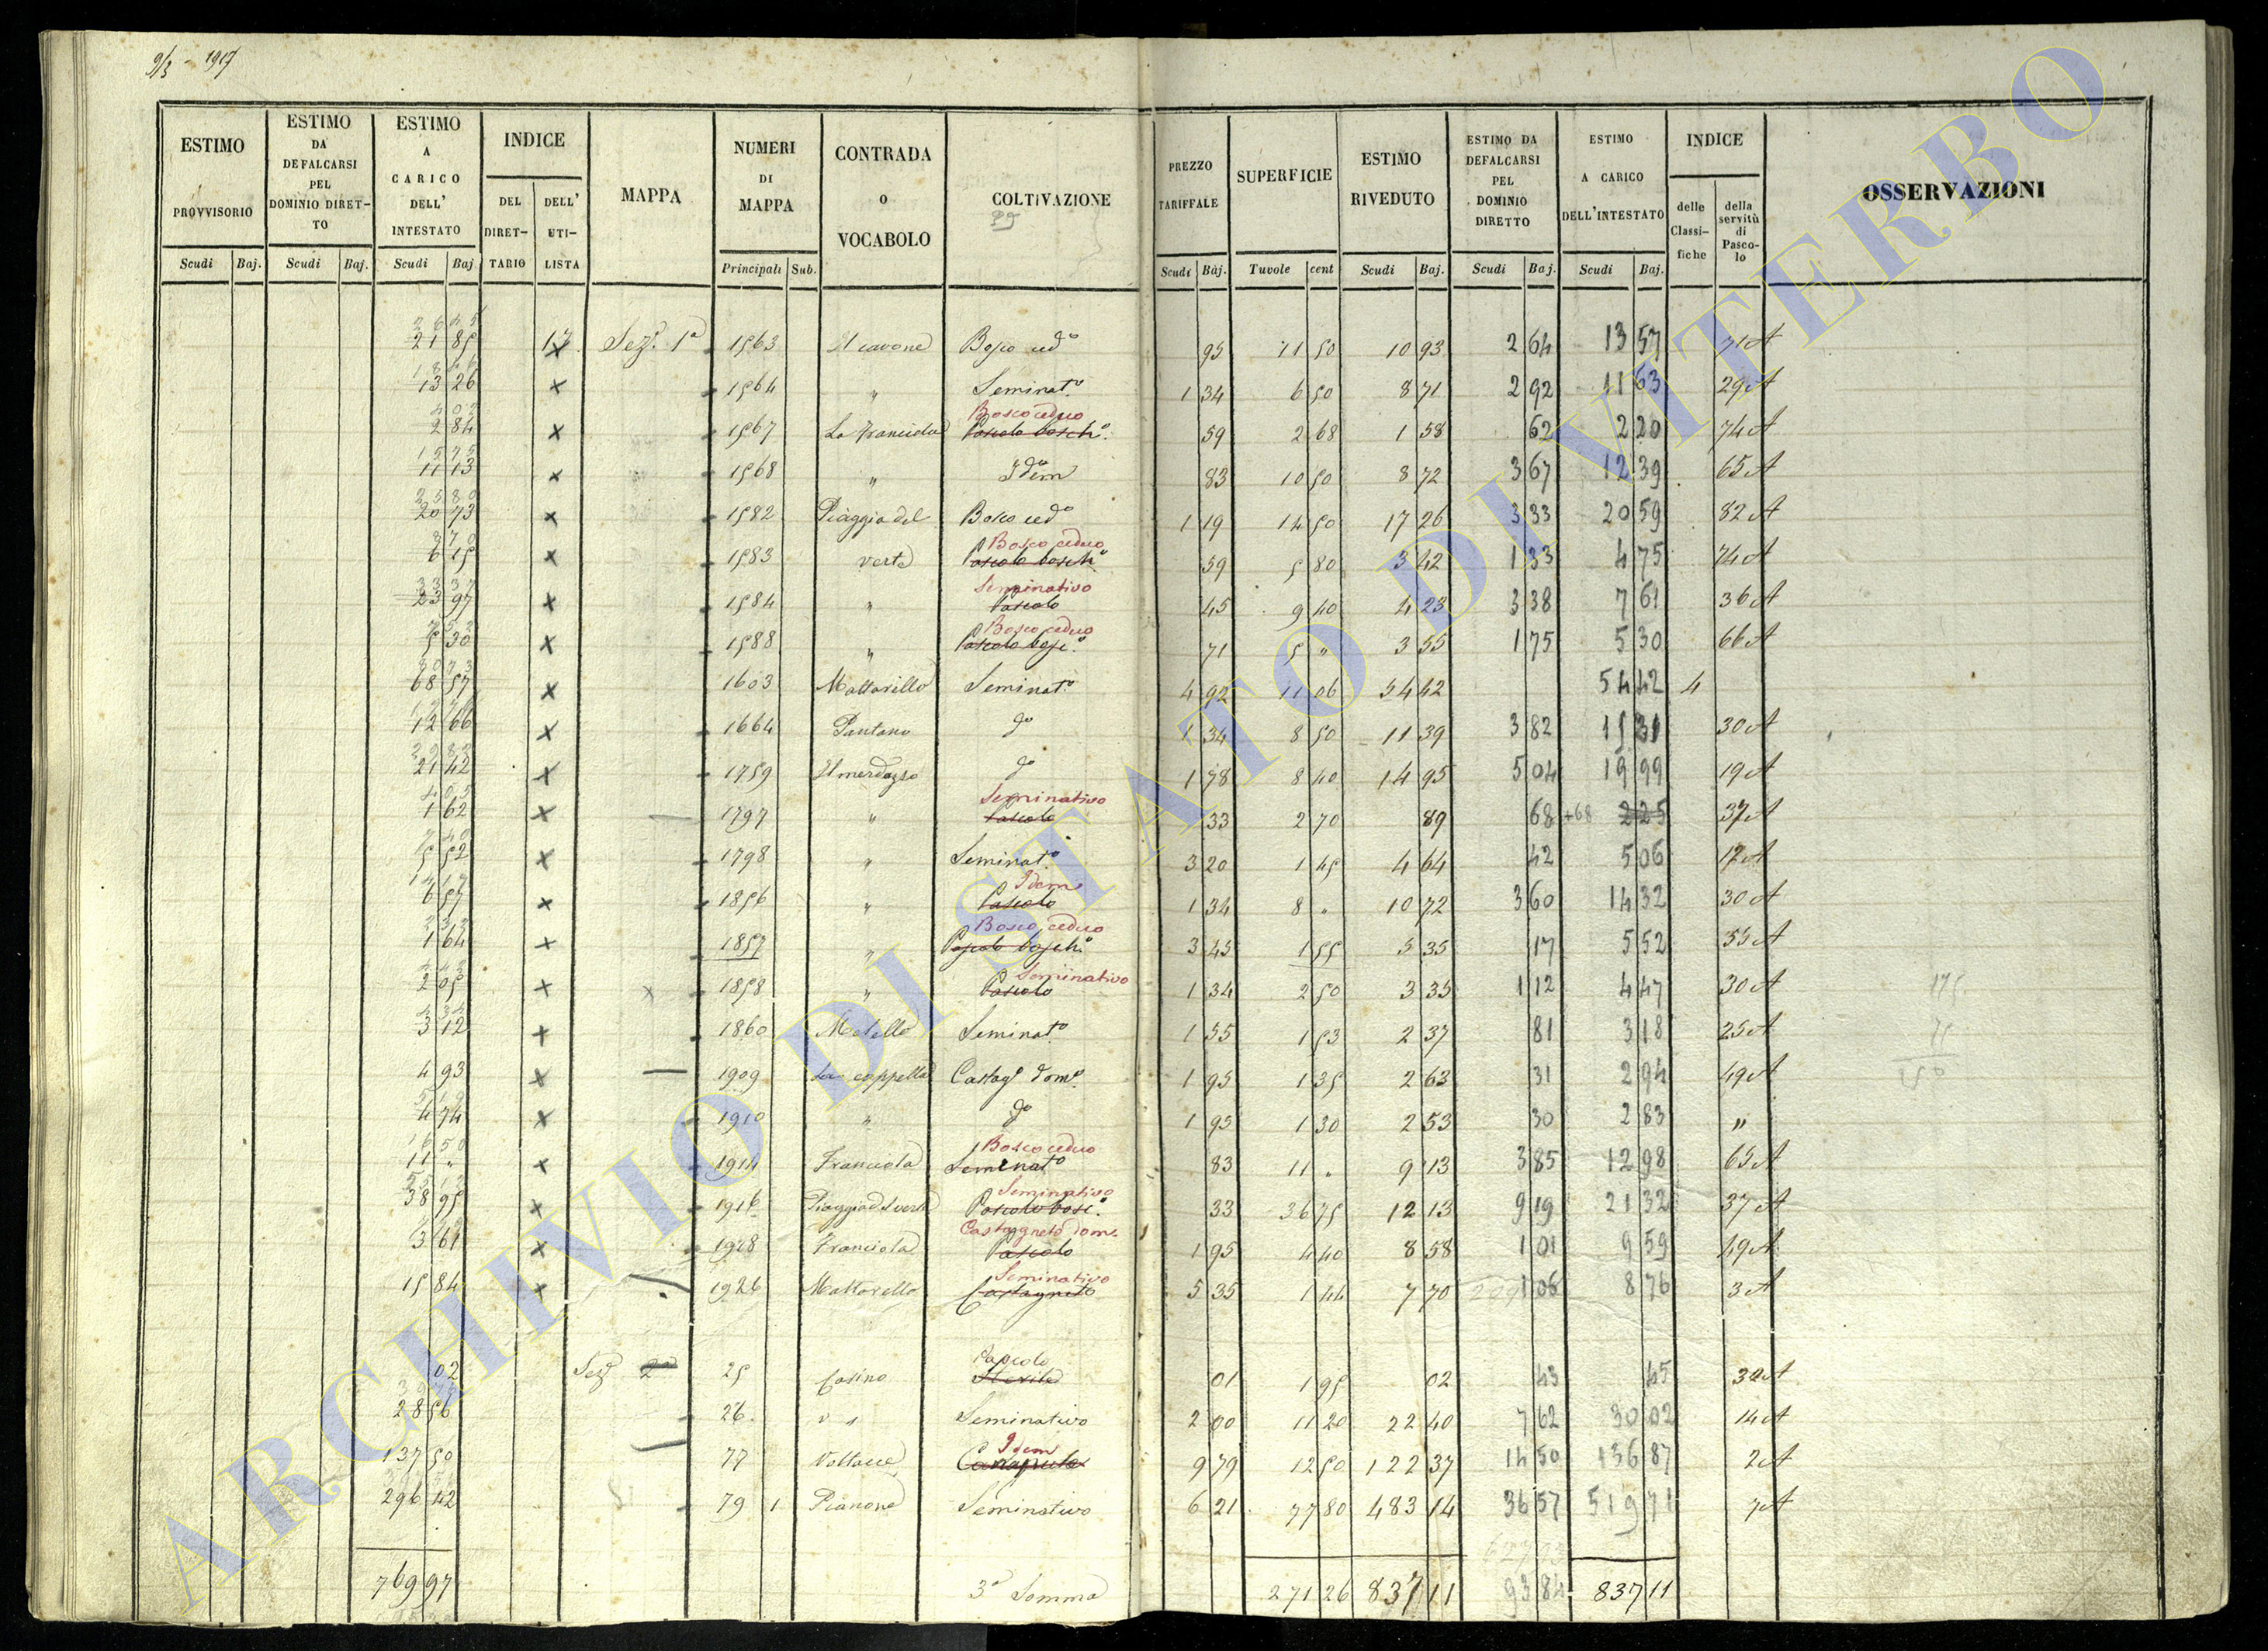 9/3 - 1917
ESTIMO PROVVISORIO | ESTIMO DA DEFALCARSI PEL DOMINIO DIRETTO | ESTIMO A CARICO DELL' INTESTATO | INDICE | MAPPA | NUMERI DI MAPPA | CONTRADA O VOCABOLO | COLTIVAZIONE | PREZZO TARIFFALE | SUPERFICIE | ESTIMO RIVEDUTO | ESTIMO DA DEFALCARSI PEL DOMINIO DIRETTO | ESTIMO A CARICO DELL'INTESTATO | INDICE | OSSERVAZIONI
DEL DIRETTARIO | DELL' UTILISTA | delle Classifiche | della servitù di Pascolo
Scudi | Baj. | Scudi | Baj. | Scudi | Baj | Principali | Sub. | Scudi | Baj. | Tuvole | cent | Scudi | Baj. | Scudi | Baj. | Scudi | Baj.
21 85 | 17 x | Sezε 1ª | 1563 | Il cavone | Bosco cedº | 95 | 11 50 | 10 93 | 2 64 | 13 57 | 71 A
13 26 | x | 1564 | " | Seminatº | 1 34 | 6 50 | 8 71 | 2 92 | 11 63 | 29 A
Bosco ceduo
2 84 | x | 1567 | La Franciola | Pascolo boschº | 59 | 2 68 | 1 58 | 62 | 2 20 | 74 A
11 13 | x | 1568 | " | Idem | 83 | 10 50 | 8 72 | 3 67 | 12 39 | 65 A
20 73 | x | 1582 | Piaggia del | Bosco cedº | 1 19 | 14 50 | 17 26 | 3 33 | 20 59 | 82 A
Bosco ceduo
6 15 | x | 1583 | verte | Pascolo boschº | 59 | 5 80 | 3 42 | 1 33 | 4 75 | 74 A
Seminativo
23 97 | x | 1584 | " | Pascolo | 45 | 9 40 | 4 23 | 3 38 | 7 61 | 36 A
Bosco ceduo
5 30 | x | 1588 | " | Pascolo boscº | 71 | 5 " | 3 55 | 1 75 | 5 30 | 66 A
68 57 | x | 1603 | Mattarello | Seminatº | 4 92 | 11 06 | 54 42 | 54 42 | 4
12 66 | x | 1664 | Pantano | dº | 1 34 | 8 50 | 11 39 | 3 82 | 15 21 | 30 A
21 42 | x | 1759 | Il merdazzo | dº | 1 78 | 8 40 | 14 95 | 5 04 | 19 99 | 19 A
Seminativo
1 62 | x | 1797 | " | Pascolo | 33 | 2 70 | 89 | 68 | +68 2 25 | 37 A
5 52 | x | 1798 | " | Seminatº | 3 20 | 1 45 | 4 64 | 42 | 5 06 | 12 A
Idem
6 57 | x | 1856 | " | Pascolo | 1 34 | 8 " | 10 72 | 3 60 | 14 32 | 30 A
Bosco ceduo
1 64 | x | 1857 | " | Pascolo boschº | 3 45 | 1 55 | 5 35 | 17 | 5 52 | 55 A
Seminativo
2 05 | x | 1858 | " | Pascolo | 1 34 | 2 50 | 3 35 | 1 12 | 4 47 | 30 A | 175
3 12 | x | 1860 | Metello | Seminatº | 1 55 | 1 53 | 2 37 | 81 | 3 18 | 25 A | 75
4 93 | x | 1909 | La cappella | Castagº domº | 1 95 | 1 35 | 2 63 | 31 | 2 94 | 49 A | 250
4 74 | x | 1910 | " | dº | 1 95 | 1 30 | 2 53 | 30 | 2 83 | "
Bosco ceduo
11 " | x | 1914 | Franciola | Seminatº | 83 | 11 " | 9 13 | 3 85 | 12 98 | 65 A
Seminativo
38 95 | x | 1916 | Piaggia del verte | Pascolo boscº | 33 | 36 75 | 12 13 | 9 19 | 21 32 | 37 A
Castagneto dome
3 61 | x | 1928 | Franciola | Pascolo | 1 95 | 4 40 | 8 58 | 1 01 | 9 59 | 49 A
Seminativo
15 84 | x | 1926 | Mattarello | Castagneto | 5 35 | 1 44 | 7 70 | 1 06 | 8 76 | 3 A
Pascolo
02 | Sezε 2ª | 25 | Casino | Sterile | 01 | 1 95 | 02 | 43 | 45 | 32 A
28 56 | 26 | Seminativo | 2 00 | 11 20 | 22 40 | 7 62 | 30 02 | 14 A
Idem
137 50 | 77 | Voltacce | Canapule | 9 79 | 12 50 | 122 37 | 14 50 | 136 87 | 2 A
296 42 | 79 1 | Pianone | Seminativo | 6 21 | 77 80 | 483 14 | 36 57 | 519 71 | 7 A
769 97 | 3ª Somma | 271 26 | 837 11 | 93 84 | 837 11
ARCHIVIO DI STATO DI VITERBO